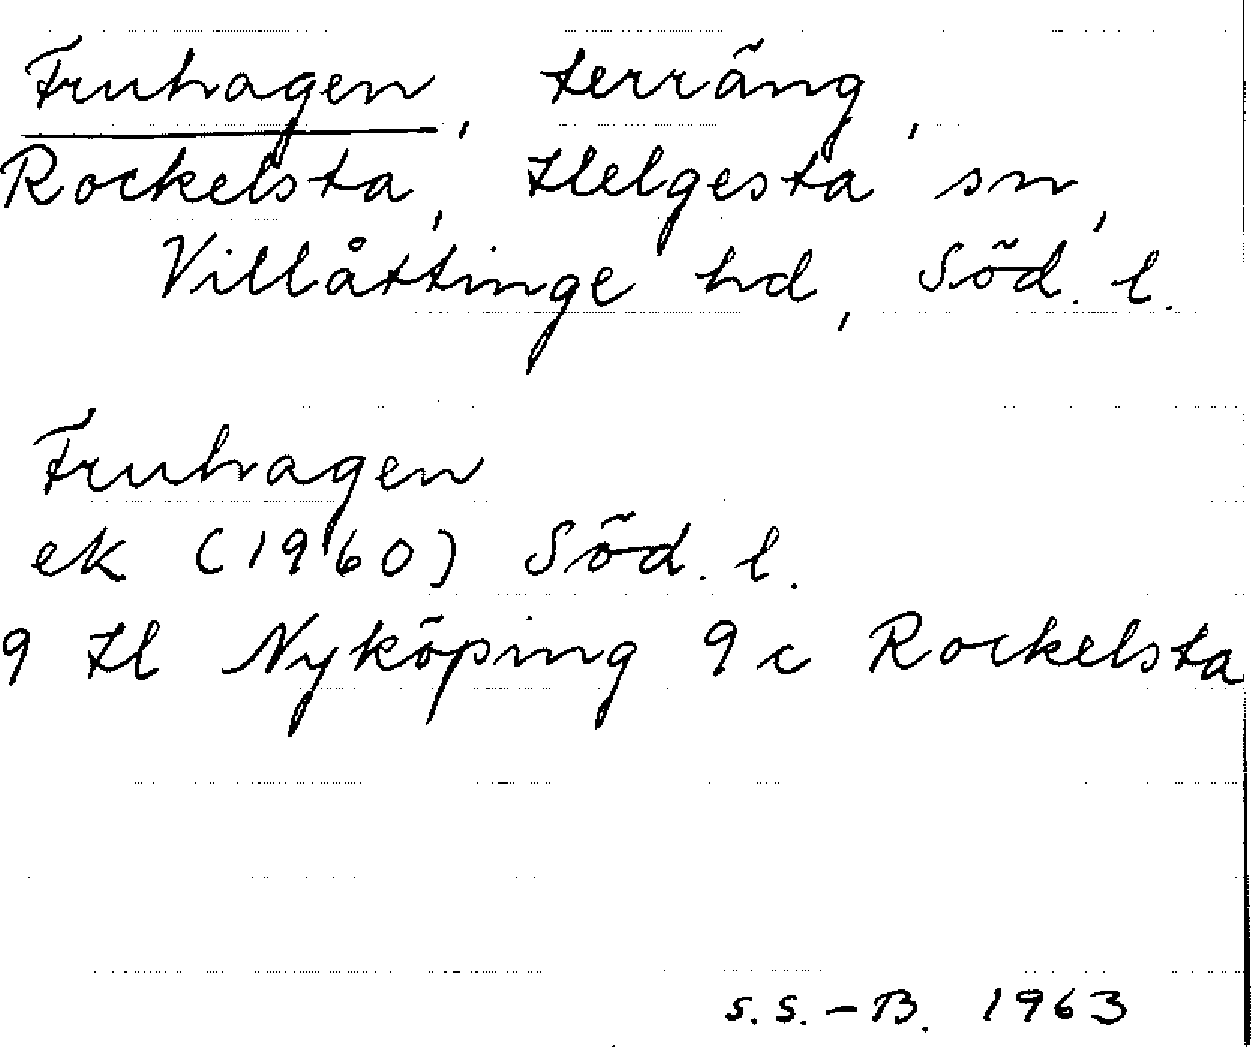 Fruhagen, terräng,
Rockelsta, Helgesta sn,
Villåttinge hd, Söd. l.
Fruhagen
ek (1960) Söd. l.
9 H Nyköping 9 c Rockelsta
S. S. - B. 1963